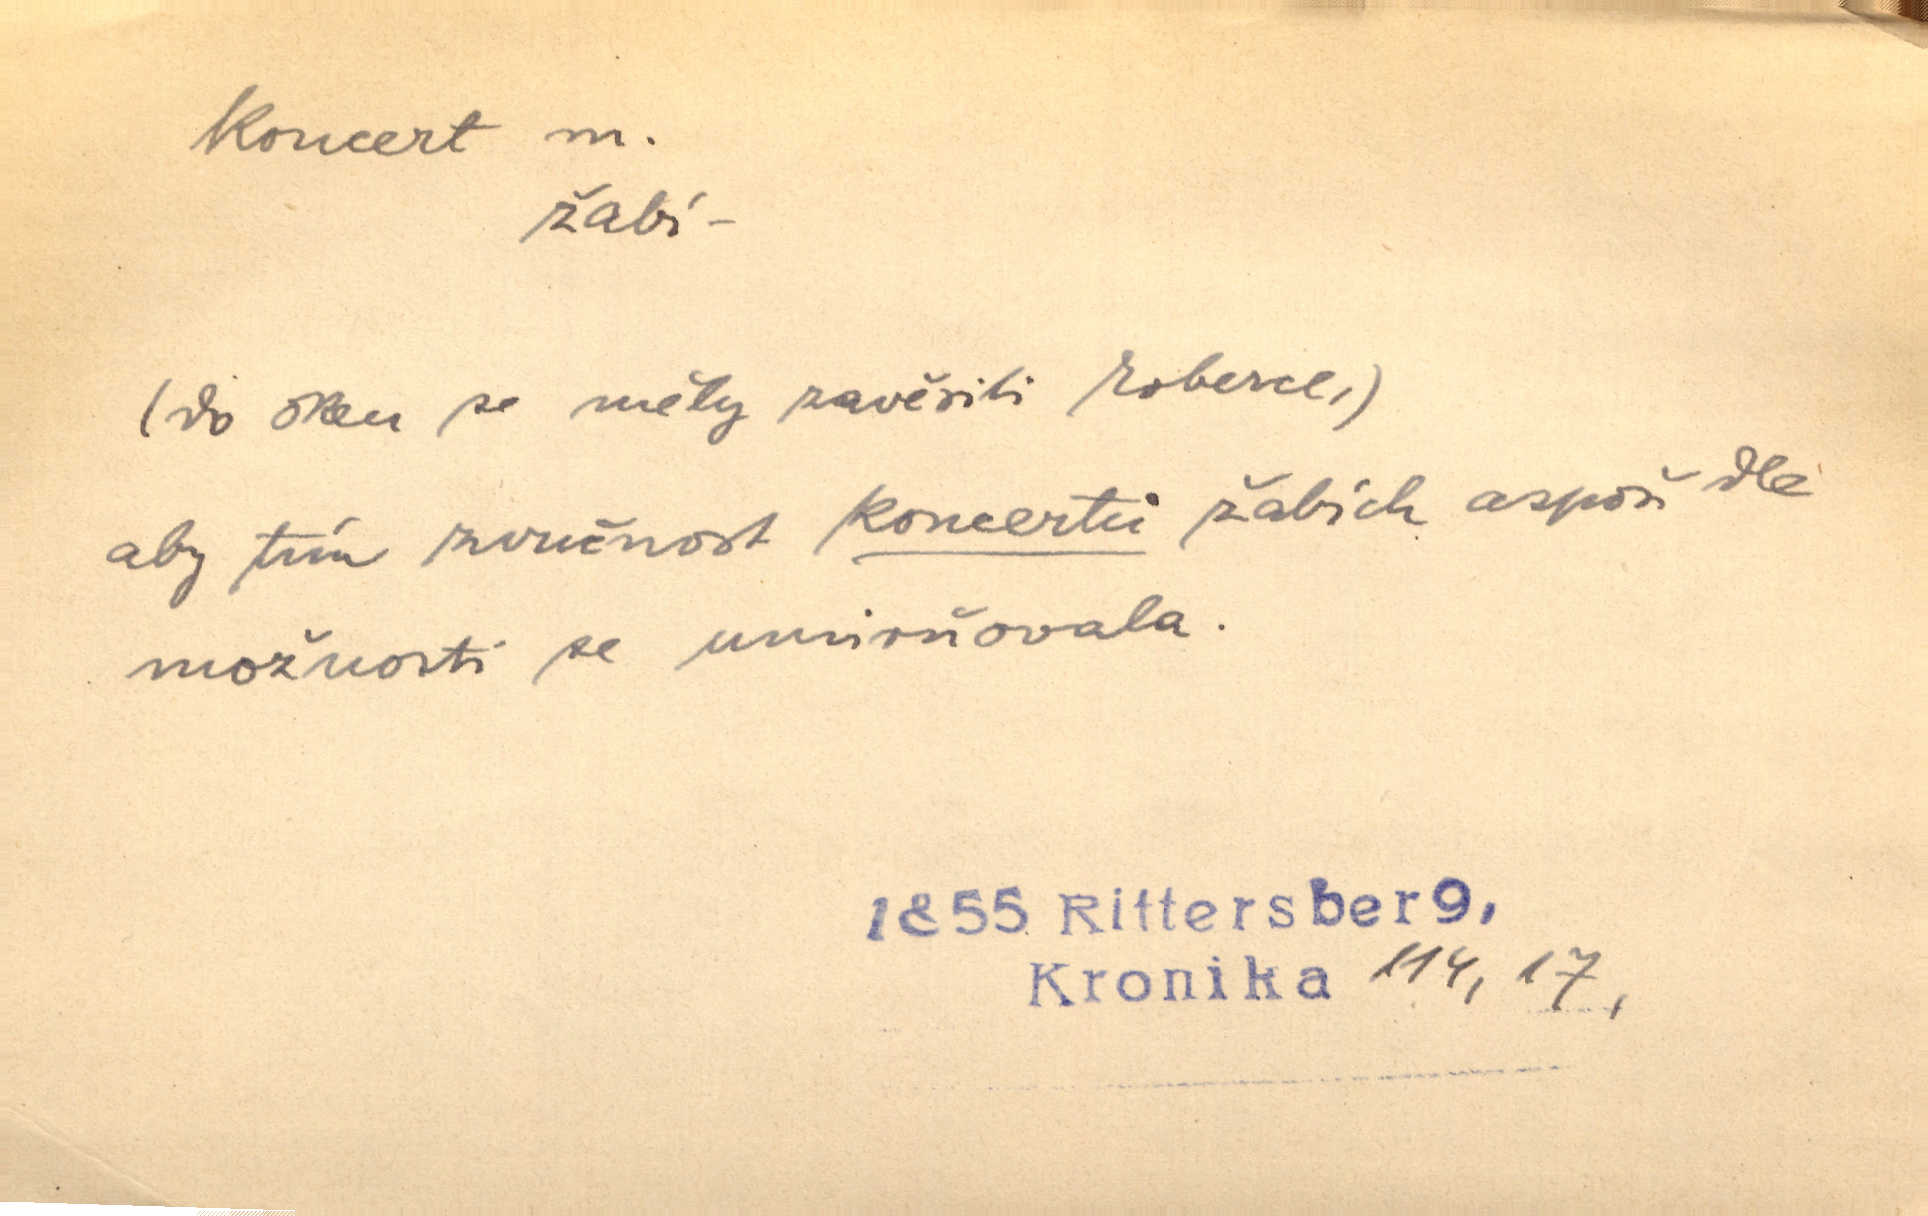 Koncert m.
žabí -
(do oken se měly zavěsiti koberce,)
aby tím zvučnost koncertů žabích aspoň dle
možnosti se umírňovala.
1855 Rittersberg,
Kronika 114, 17,